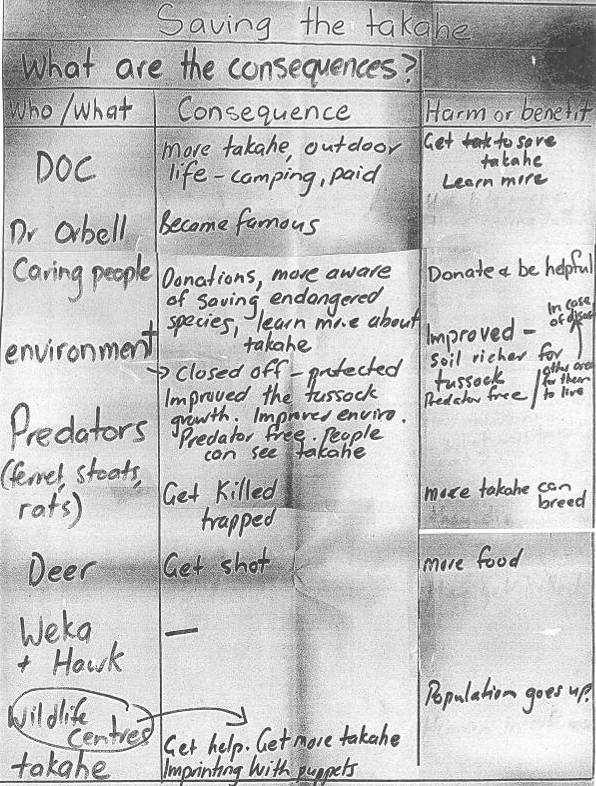 Saving the takahe
What are the consequences?
Who/What
Consequence
Harm or benefit
DOC
More takahe, outdoor
life - camping, paid
Get to save
takahe
Learn more
Dr Orbell
Become famous
Caring people
Donations, more aware
of saving endangered
species, learn more about
takahe
Donate & be helpful
environment
→ Closed off - protected
Improved the tussock
growth. Improves enviro.
Predator free. People
can see takahe
Improved -
soil richer for
tussock
Predator free
In case
of
other area
for them
to live
Predators
(ferret, stoats,
rats)
Get Killed
trapped
more takahe can
breed
Deer
Get shot
more food
Weka
+ Hawk
—
Wildlife
Centres
takahe
Get help. Get more takahe
Imprinting with puppets
Population goes up.